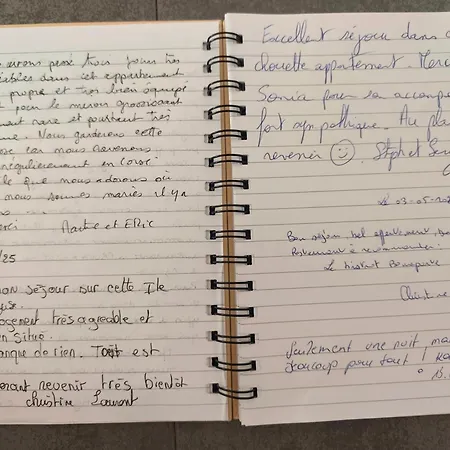 avons passé trois jours très
dans cet appartement
propre et très bien équipé
pour le menu
rare et pourtant très
Nous garderons cette
car nous revenons
régulièrement en Corse
que nous adorons où
nous sommes mariés il y a
Martine et Eric
/25
bon séjour sur cette Ile
logement très agréable et
en situé.
manque de rien. Tout est
espérant revenir très bientôt
Christine Laurent
Excellent séjour dans c
chouette appartement. Merci
Sonia pour son accompa
fort sympathique. Au pla
revenir ☺. Steph et
Le 03-05-202
Bon séjour, bel appartement, bon
Restaurant à recommander:
Le bistrot Bonaparte
Christine
Seulement une nuit mai
beaucoup pour tout !